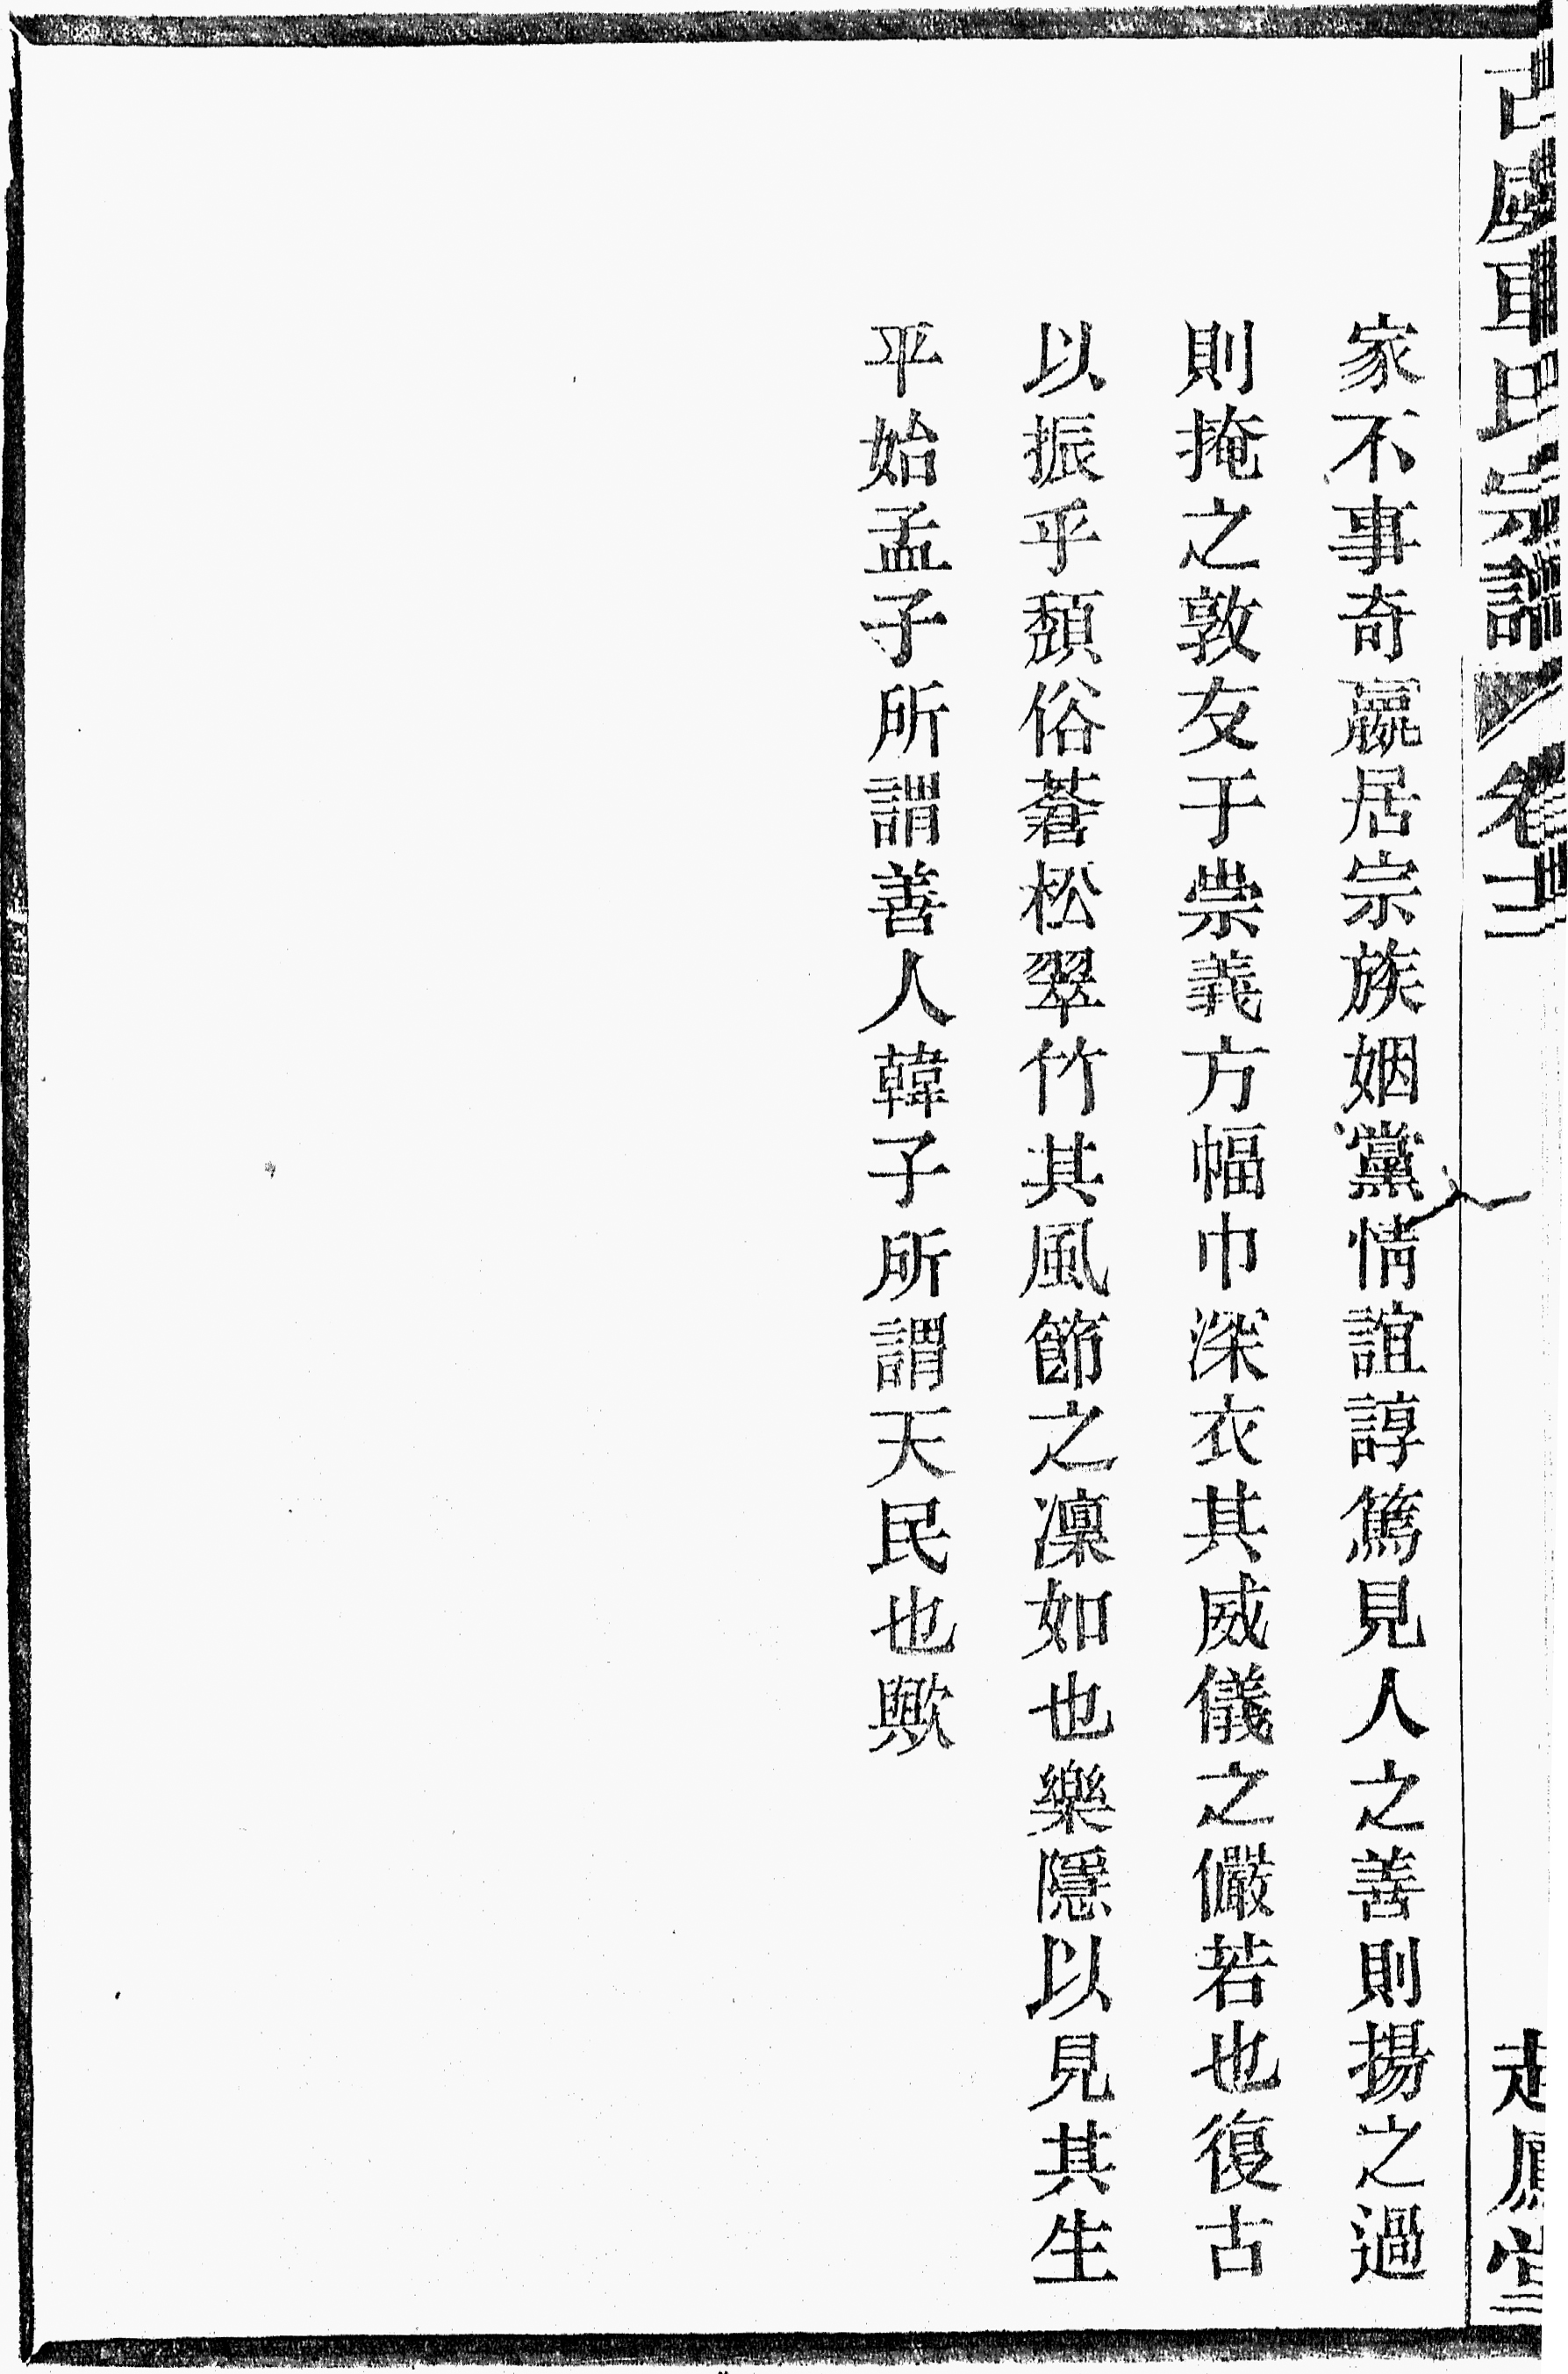 古虞車氏宗譜 卷三 起鳳堂
家不事奇嬴居宗族姻黨情誼諄篤見人之善則揚之過
則掩之敦友于崇義方幅巾深衣其威儀之儼若也復古
以振乎頽俗蒼松翠竹其風節之凜如也樂隱以見其生
平始孟子所謂善人韓子所謂天民也歟